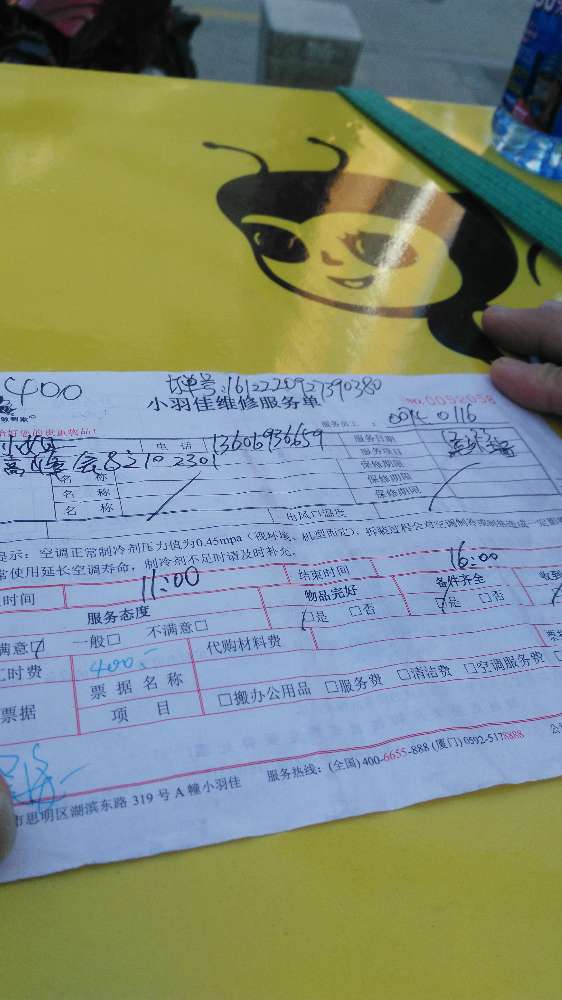 400
订单号:1612220927390380
小羽佳维修服务单
No.0092058
电 话 13606936659 服务日期
服务项目
8210 2301
名 称 保修期限
名 称 保修期限
名 称 保修期限
出风口温度
提示: 空调正常制冷剂压力值为0.45mpa (视环境、机型而定), 拆装过程会对空调制冷
常使用延长空调寿命, 制冷剂不足时请及时补充.
时间 11:00 结束时间 16:00
服务态度 物品完好 备件齐全
满意□ 一般□ 不满意□ □是 □否 □是 □否
工时费 400.- 代购材料费
票据 票 据 名 称 □搬办公用品 □服务费 □清洁费 □空调服务费
项 目
市思明区湖滨东路 319 号 A 幢小羽佳 服务热线: (全国) 400-6655-888 (厦门) 0592-5178888